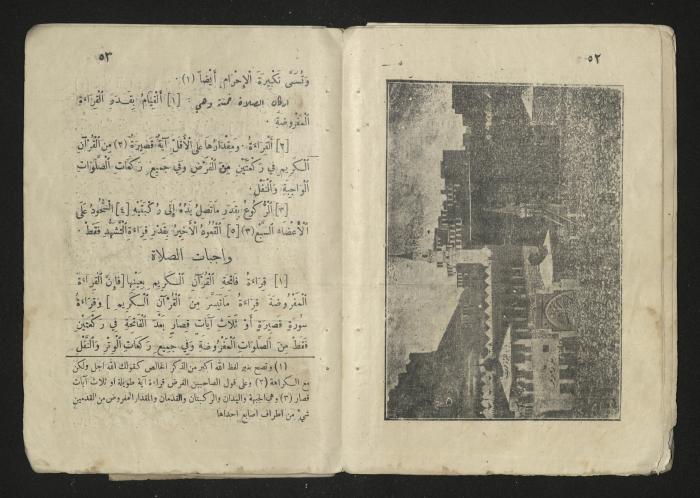 ٥٢
٥٣
وَتُسَمَّى تَكْبِيرَةَ الْإِحْرَامِ أَيْضًا (١) ·
اركان الصلاة خمسة وهي : [١] أَلْقِيَامُ بِقَدْرِ الْقِرَاءَةِ
الْمَفْرُوضَةِ ·
[٢] أَلْقِرَاءَةُ · وَمِقْدَارُهَا عَلَى الْأَقَلِّ آيَةٌ قَصِيرَةٌ (٢) مِنَ الْقُرْآنِ
الْكَرِيمِ فِي رَكْعَتَيْنِ مِنَ الْفَرْضِ وَفِي جَمِيعِ رَكَعَاتِ الصَّلَوَاتِ
الْوَاجِبَةِ وَالنَّفْلِ ·
[٣] أَلرُّكُوعُ بِقَدْرِ مَا تَصِلُ يَدُهُ إِلَى رُكْبَتَيْهِ [٤] السُّجُودُ عَلَى
الْأَعْضَاءِ السَّبْعِ (٣) [٥] الْقُعُودُ الْأَخِيرُ بِقَدْرِ قِرَاءَةِ التَّشَهُّدِ فَقَطْ ·
واجبات الصلاة
[١] قِرَاءَةُ فَاتِحَةِ الْقُرْآنِ الْكَرِيمِ بِعَيْنِهَا [فَإِنَّ الْقِرَاءَةَ
الْمَفْرُوضَةَ قِرَاءَةُ مَا تَيَسَّرَ مِنَ الْقُرْآنِ الْكَرِيمِ] وَقِرَاءَةُ
سُورَةٍ قَصِيرَةٍ أَوْ ثَلَاثِ آيَاتٍ قِصَارٍ بَعْدَ الْفَاتِحَةِ فِي رَكْعَتَيْنِ
فَقَطْ مِنَ الصَّلَوَاتِ الْمَفْرُوضَةِ وَفِي جَمِيعِ رَكَعَاتِ الْوِتْرِ وَالنَّفْلِ
(١) وتصح بغير لفظ الله اكبر من الذكر الخالص كقولك الله اجل ولكن
مع الكراهة (٢) وعلى قول الصاحبين الفرض قراءة آية طويلة او ثلاث آيات
قصار (٣) وهي الجبهة واليدان والركبتان والقدمان والمقدار المفروض من القدمين
شيء من اطراف اصابع احداها